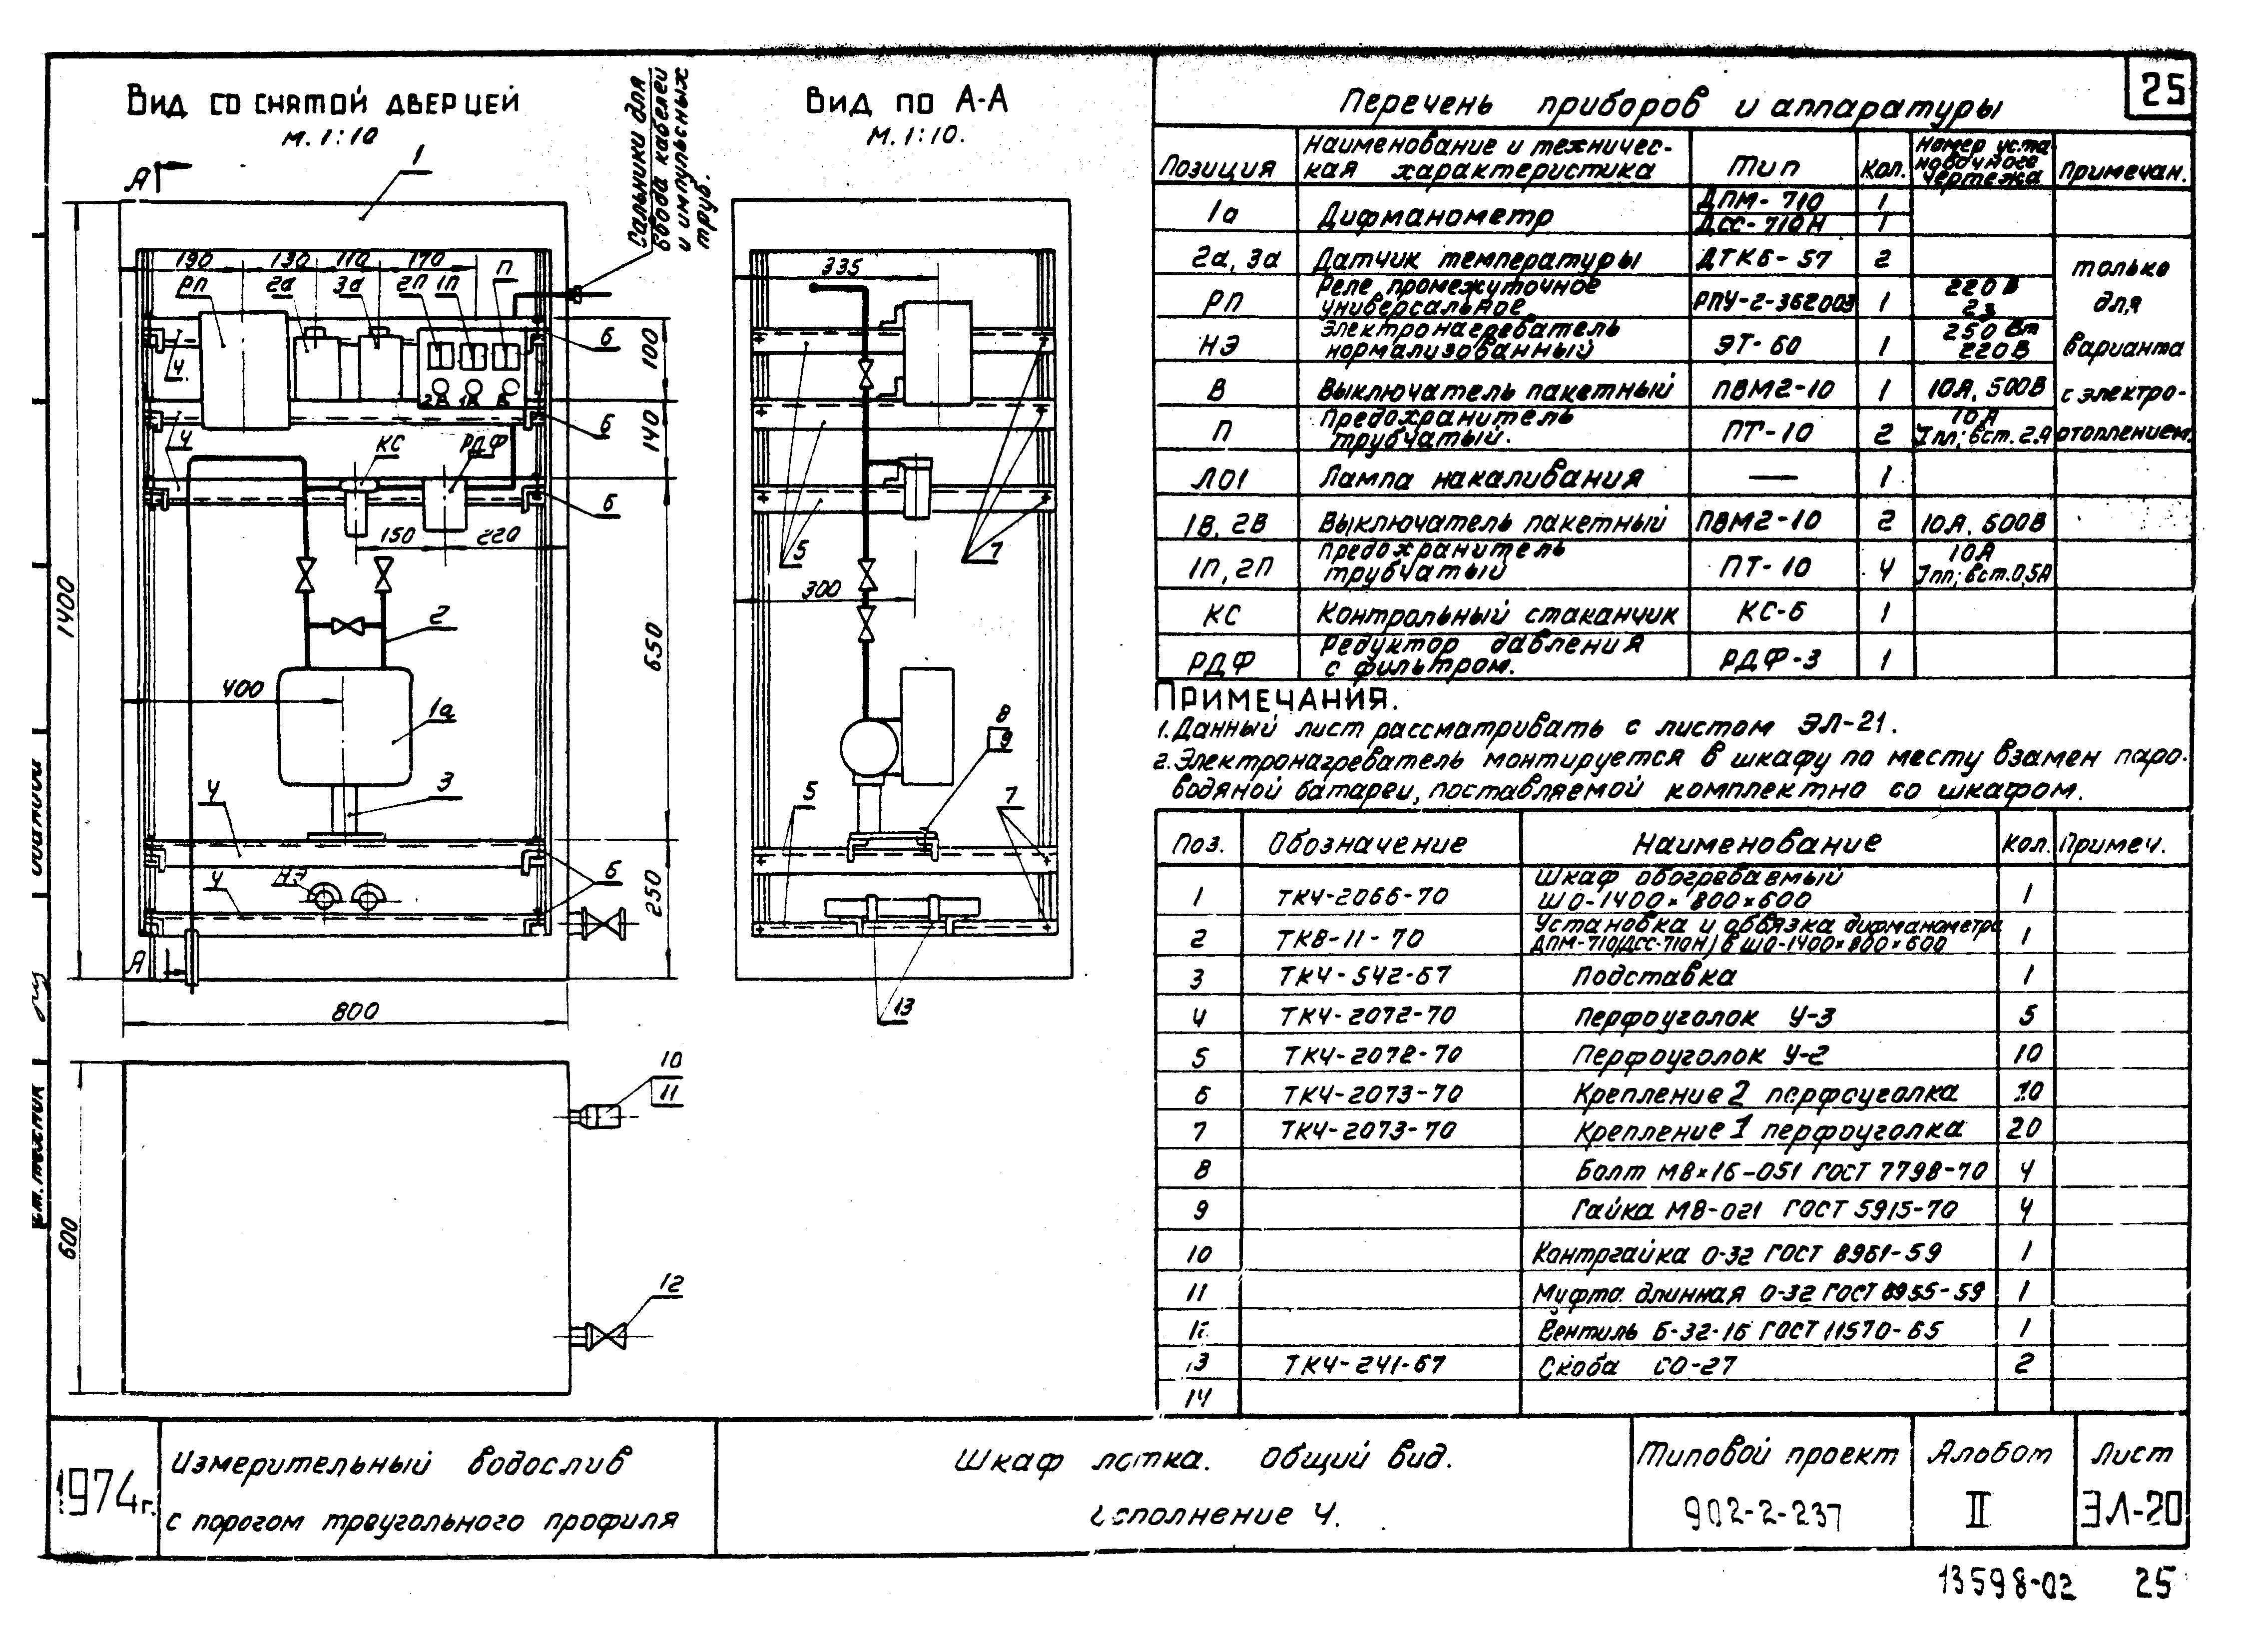 25
Вид со снятой дверцей
м. 1:10
Сальники для
ввода кабелей
и импульсных
труб.
А
1
190 130 110 170
РП 2а 3а 2П 1П П
4 6 100
4 6 140
КС РДФ
4 6
150 220
1400
2
650
400
1а
3
4
НЭ
4 6
250
А
800
10
11
600
12
Вид по А-А
М. 1:10.
335
5 7
300
8
9
5 7
13
Перечень приборов и аппаратуры
Позиция | Наименование и техничес-кая характеристика | Тип | Кол. | Номер уста новочного чертежа | Примечан.
1а | Дифманометр | ДПМ-710 | 1
ДСС-710Н | 1
2а, 3а | Датчик температуры | ДТКБ-57 | 2 | только
РП | Реле промежуточное универсальное | РПУ-2-362003 | 1 | 220В 23 | для
НЭ | Электронагреватель нормализованный | ЭТ-60 | 1 | 250 Вт 220В | варианта
В | Выключатель пакетный | ПВМ2-10 | 1 | 10А, 500В | с электро-
П | Предохранитель трубчатый. | ПТ-10 | 2 | 10А Iпл; вст. 2А | отоплением.
ЛО1 | Лампа накаливания | — | 1
1В, 2В | Выключатель пакетный | ПВМ2-10 | 2 | 10А, 500В
1П, 2П | Предохранитель трубчатый | ПТ-10 | 4 | 10А Iпл; вст. 0,5А
КС | Контрольный стаканчик | КС-6 | 1
РДФ | Редуктор давления с фильтром. | РДФ-3 | 1
Примечания.
1. Данный лист рассматривать с листом ЭЛ-21.
2. Электронагреватель монтируется в шкафу по месту взамен паро-
водяной батареи, поставляемой комплектно со шкафом.
Поз. | Обозначение | Наименование | Кол. | Примеч.
1 | ТК4-2066-70 | Шкаф обогреваемый ШО-1400×800×600 | 1
2 | ТКВ-11-70 | Установка и обвязка дифманометра ДПМ-710(ДСС-710Н) в ШО-1400×800×600 | 1
3 | ТК4-542-67 | Подставка | 1
4 | ТК4-2072-70 | Перфоуголок У-3 | 5
5 | ТК4-2072-70 | Перфоуголок У-2 | 10
6 | ТК4-2073-70 | Крепление 2 перфоуголка | 10
7 | ТК4-2073-70 | Крепление 1 перфоуголка | 20
8 | Болт М8×16-051 ГОСТ 7798-70 | 4
9 | Гайка М8-021 ГОСТ 5915-70 | 4
10 | Контргайка О-32 ГОСТ 8961-59 | 1
11 | Муфта длинная О-32 ГОСТ 8955-59 | 1
12 | Вентиль Б-32-16 ГОСТ 11570-65 | 1
13 | ТК4-241-67 | Скоба СО-27 | 2
14
1974г.
Измерительный водослив
с порогом треугольного профиля
Шкаф лотка. Общий вид.
Исполнение 4.
Типовой проект
902-2-237
Альбом
II
Лист
ЭЛ-20
13598-02 25